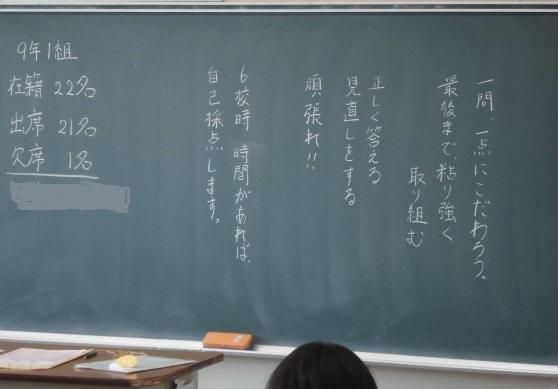 一問、一点にこだわろう。
最後まで、粘り強く
取り組む
正しく答える
見直しをする
頑張れ!!
6校時 時間があれば、
自己採点します。
9年1組
在籍 22名
出席 21名
欠席 1名